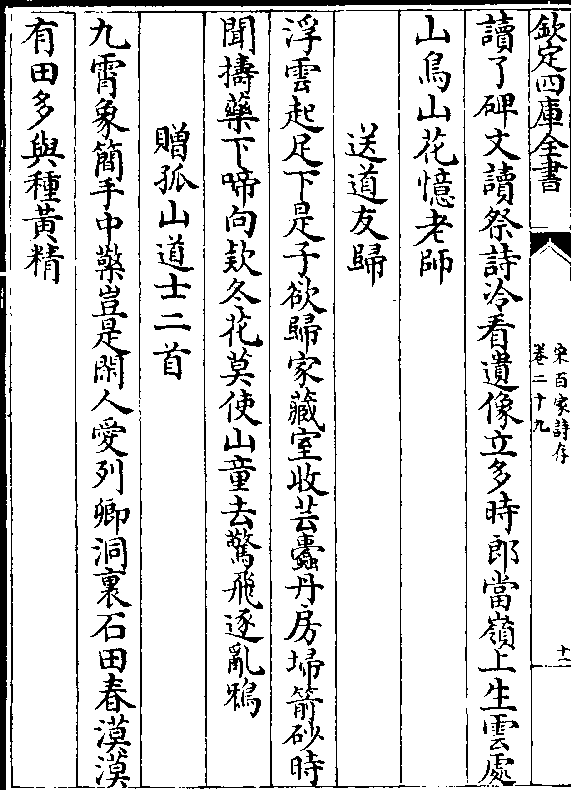 欽定四庫全書
宋百家詩存
卷二十九
十一
讀了碑文讀祭詩冷看遺像立多時郎當嶺上生雲處
山鳥山花憶老師
送道友歸
浮雲起足下是子欲歸家藏室收芸蠧丹房埽箭砂時
聞擣藥下啼向欵冬花莫使山童去驚飛逐亂鴉
贈孤山道士二首
九霄象簡手中擎豈是閑人愛列卿洞裏石田春漠漠
有田多與種黃精